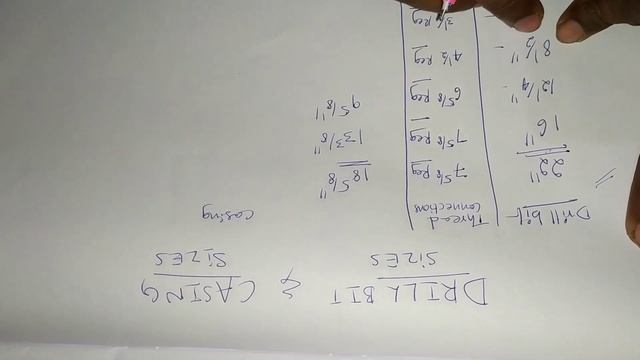 DRILL BIT & CASING
SIZES SIZES
Drill bit Thread Connections Casing
22" 7 5/8 Reg 18 5/8"
16" 7 5/8 Reg 13 3/8"
12 1/4" - 6 5/8 Reg 9 5/8"
8 1/2" - 4 1/2 Reg